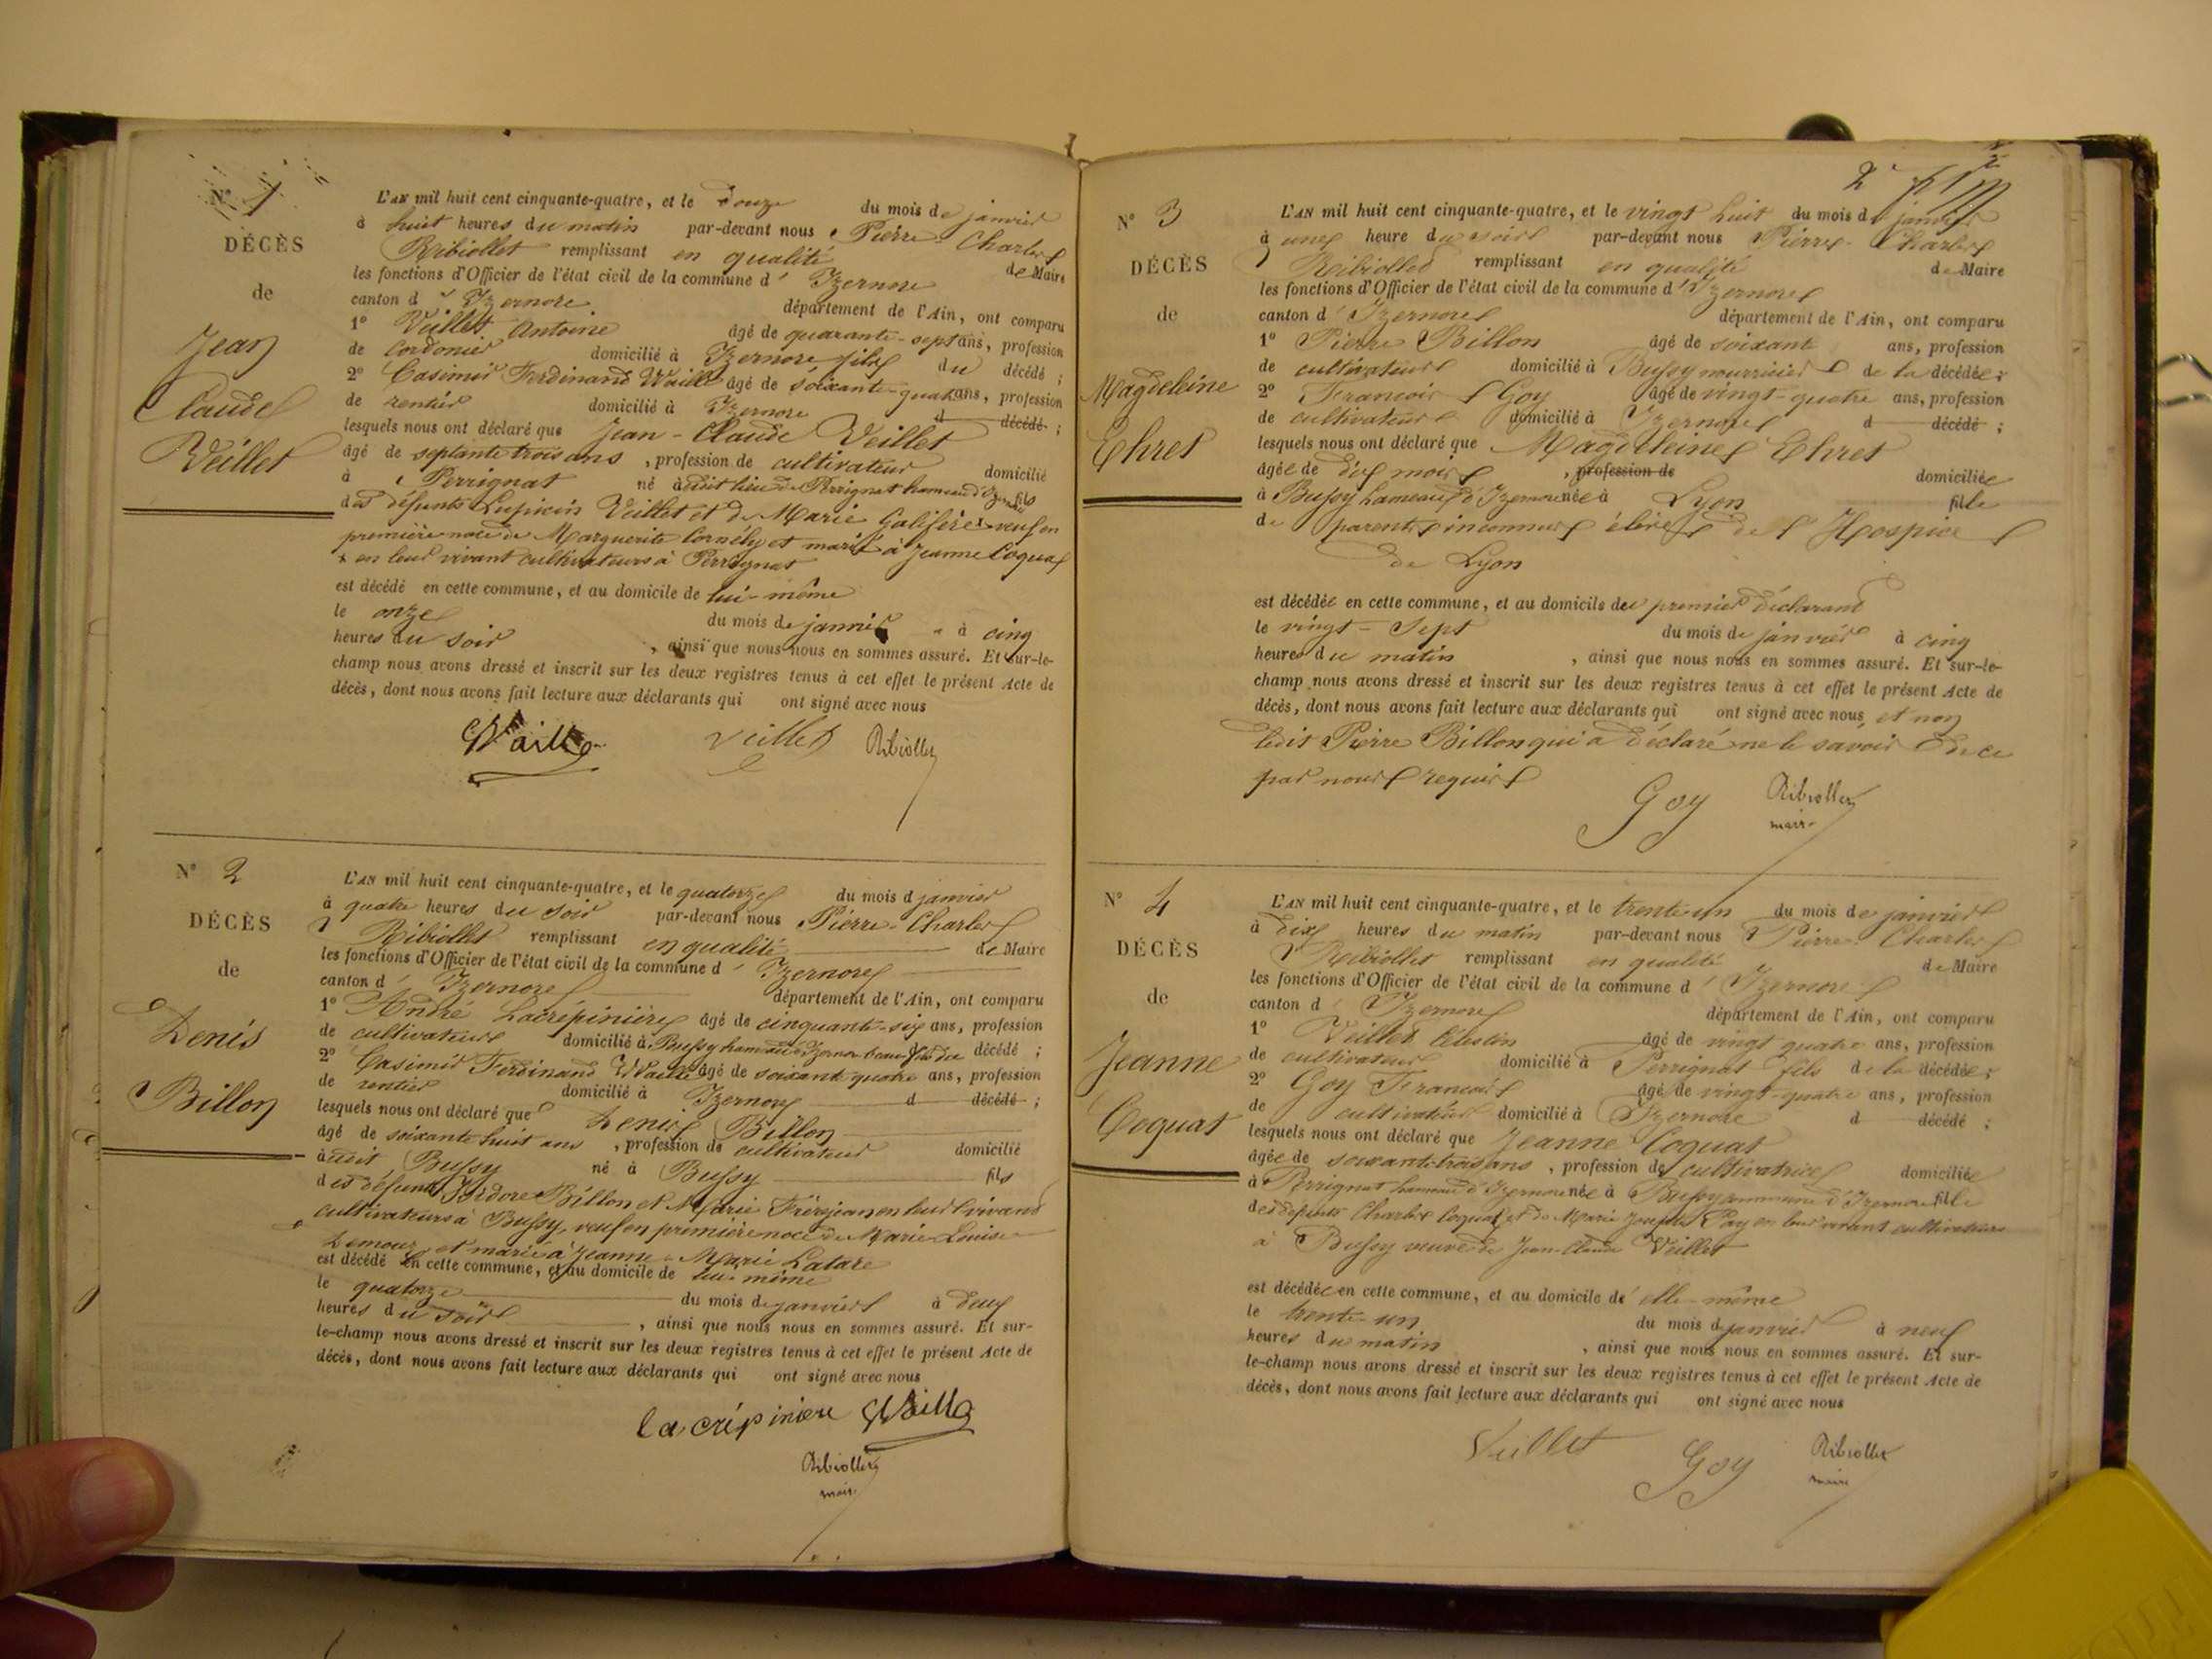 N° 1
DÉCÈS
de
Jean
Claude
Veillet
L'AN mil huit cent cinquante-quatre, et le douze du mois de janvier
à huit heures du matin par-devant nous Pierre-Charles
Ribiollet remplissant en qualité de Maire
les fonctions d'Officier de l'état civil de la commune d'Izernore
canton d'Izernore département de l'Ain, ont comparu
1° Veillet Antoine âgé de quarante-sept ans, profession
de Cordonier domicilié à Izernore fils du décédé ;
2° Casimir Ferdinand Waille âgé de soixante-quatre ans, profession
de rentier domicilié à Izernore d décédé ;
lesquels nous ont déclaré que Jean-Claude Veillet
âgé de septante trois ans, profession de cultivateur domicilié
à Perrignat né audit lieu de Perrignat hameau d'Izernore fils
des défunts Lupicin Veillet et de Marie Galifère x veuf en
première noce de Marguerite Cornély et marié à Jeanne Coquas
x en leur vivant cultivateurs à Perrignat
est décédé en cette commune, et au domicile de lui-même
le onze du mois de janvier à cinq
heures du soir, ainsi que nous nous en sommes assuré. Et sur-le-
champ nous avons dressé et inscrit sur les deux registres tenus à cet effet le présent Acte de
décès, dont nous avons fait lecture aux déclarants qui ont signé avec nous
Waille Veillet Ribiollet
N° 2
DÉCÈS
de
Denis
Billon
L'AN mil huit cent cinquante-quatre, et le quatorze du mois d janvier
à quatre heures du soir par-devant nous Pierre-Charles
Ribiollet remplissant en qualité de Maire
les fonctions d'Officier de l'état civil de la commune d'Izernore
canton d'Izernore département de l'Ain, ont comparu
1° André Lacrépinière âgé de cinquante-six ans, profession
de cultivateur domicilié à Bussy hameau d'Izernore beau-fils du décédé ;
2° Casimir Ferdinand Waille âgé de soixante quatre ans, profession
de rentier domicilié à Izernore d décédé ;
lesquels nous ont déclaré que Denis Billon
âgé de soixante huit ans, profession de cultivateur domicilié
audit Bussy né à Bussy fils
des défunts Isidore Billon et Marie Frèrejean en leur vivant
cultivateurs à Bussy, veuf en première noce de Marie Louise
et marié à Jeanne-Marie Latare
est décédé en cette commune, et au domicile de lui-même
le quatorze du mois de janvier à deux
heures du soir, ainsi que nous nous en sommes assuré. Et sur-
le-champ nous avons dressé et inscrit sur les deux registres tenus à cet effet le présent Acte de
décès, dont nous avons fait lecture aux déclarants qui ont signé avec nous
la crépiniere Waille
Ribiollet
maire
2
N° 3
DÉCÈS
de
Magdeleine
Ehret
L'AN mil huit cent cinquante-quatre, et le vingt huit du mois de janvier
à une heure du soir par-devant nous Pierre-Charles
Ribiollet remplissant en qualité de Maire
les fonctions d'Officier de l'état civil de la commune d'Izernore
canton d'Izernore département de l'Ain, ont comparu
1° Pierre Billon âgé de soixante ans, profession
de cultivateur domicilié à Bussy nourricier de la décédée ;
2° Francois Goy âgé de vingt-quatre ans, profession
de cultivateur domicilié à Izernore d décédé ;
lesquels nous ont déclaré que Magdeleine Ehret
âgée de dix mois, profession de domiciliée
à Bussy hameau d'Izernore née à Lyon fille
de parents inconnus élève de l'Hospice
de Lyon
est décédée en cette commune, et au domicile du premier déclarant
le vingt-sept du mois de janvier à cinq
heures du matin, ainsi que nous nous en sommes assuré. Et sur-le-
champ nous avons dressé et inscrit sur les deux registres tenus à cet effet le présent Acte de
décès, dont nous avons fait lecture aux déclarants qui ont signé avec nous et non
ledit Pierre Billon qui a déclaré ne le savoir de ce
par nous requis
Goy Ribiollet
maire
N° 4
DÉCÈS
de
Jeanne
Coquat
L'AN mil huit cent cinquante-quatre, et le trente-un du mois de janvier
à dix heures du matin par-devant nous Pierre-Charles
Ribiollet remplissant en qualité de Maire
les fonctions d'Officier de l'état civil de la commune d'Izernore
canton d'Izernore département de l'Ain, ont comparu
1° Veillet Célestin âgé de vingt quatre ans, profession
de cultivateur domicilié à Perrignat fils de la décédée ;
2° Goy Francois âgé de vingt-quatre ans, profession
de cultivateur domicilié à Izernore d décédé ;
lesquels nous ont déclaré que Jeanne Coquat
âgée de soixante trois ans, profession de cultivatrice domiciliée
à Perrignat hameau d'Izernore née à Bussy commune d'Izernore fille
des défunts Charles Coquat et de Marie Josephe Pay en leur vivant cultivateurs
à Bussy veuve de Jean-Claude Veillet
est décédée en cette commune, et au domicile d'elle-même
le trente-un du mois de janvier à neuf
heures du matin, ainsi que nous nous en sommes assuré. Et sur-
le-champ nous avons dressé et inscrit sur les deux registres tenus à cet effet le présent Acte de
décès, dont nous avons fait lecture aux déclarants qui ont signé avec nous
Veillet Goy Ribiollet
maire